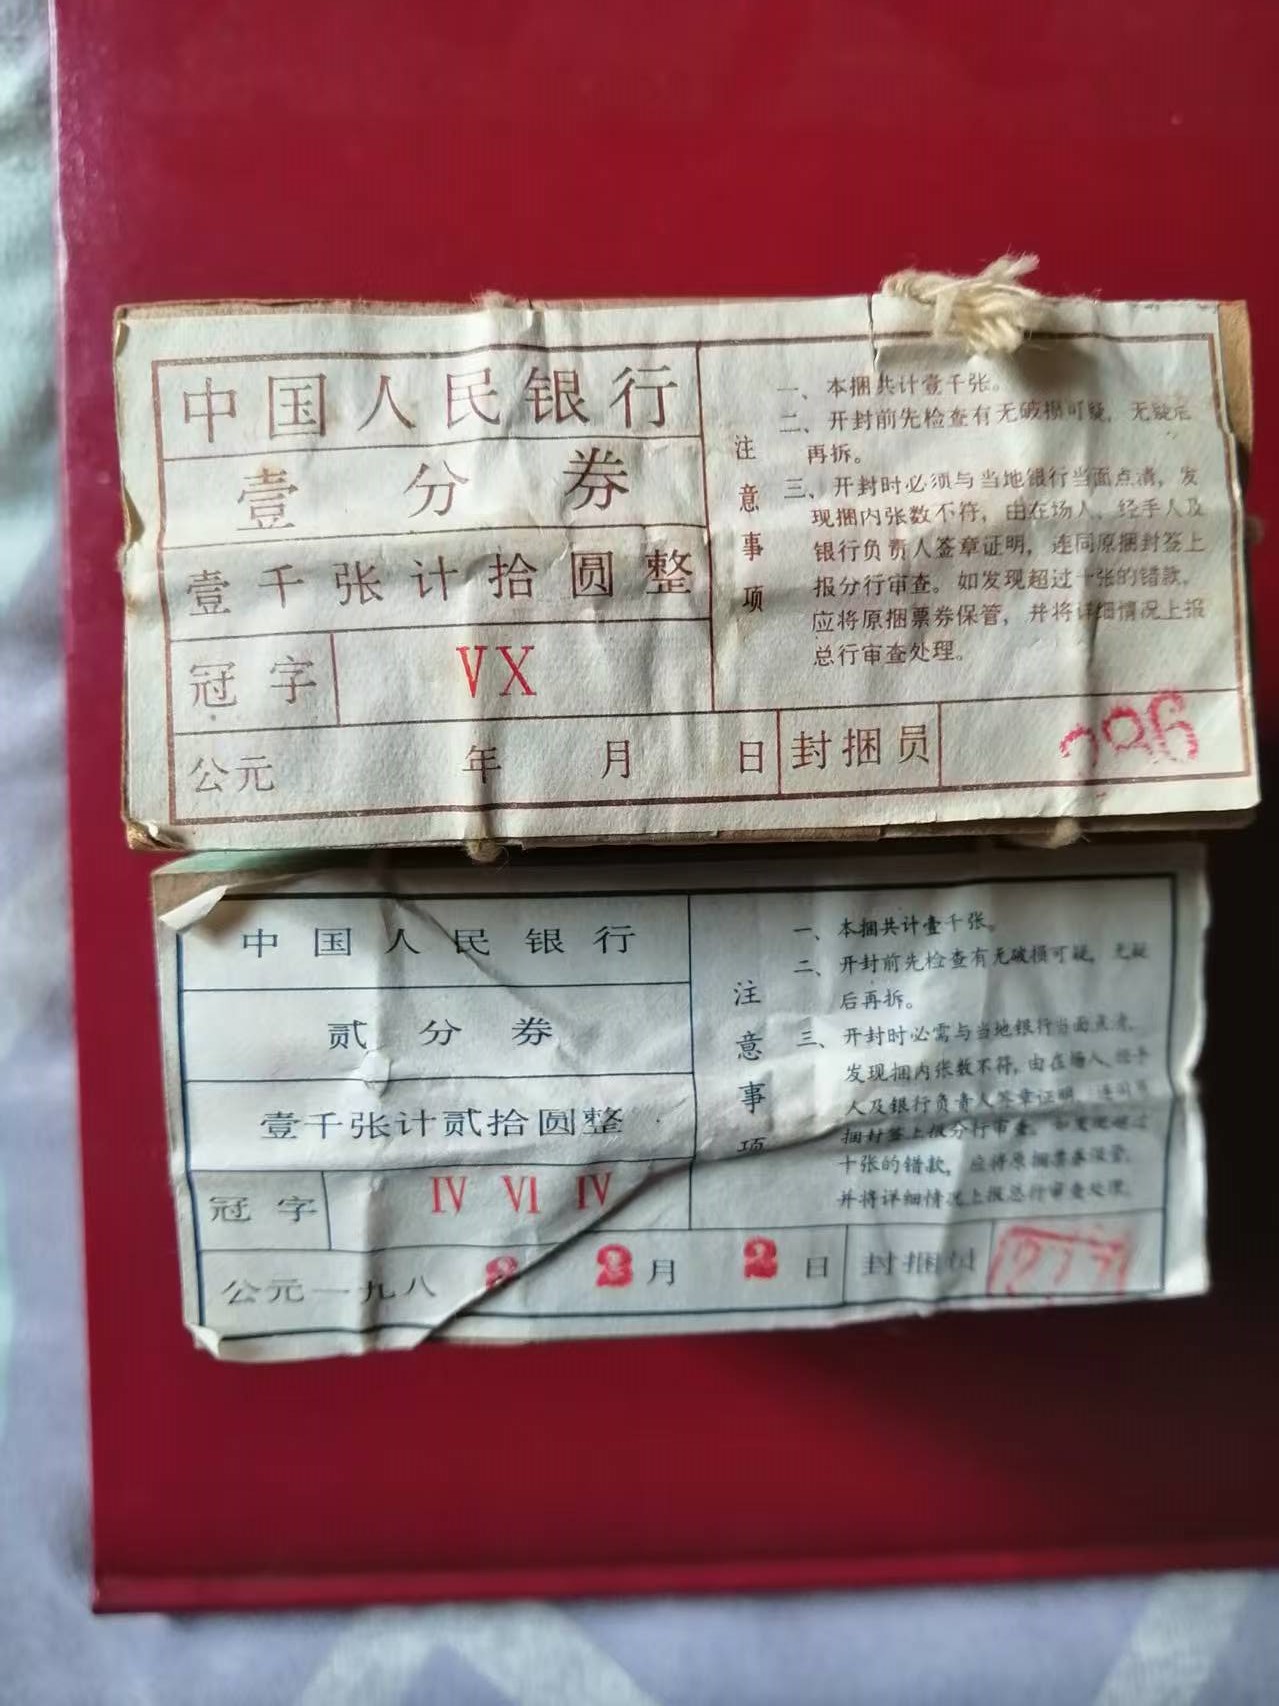 中国人民银行
壹分券
壹千张计拾圆整
冠字 VX
公元 年 月 日 封捆员
注意事项
一、本捆共计壹千张。
二、开封前先检查有无破损可疑，无疑后
再拆。
三、开封时必须与当地银行当面点清，发
现捆内张数不符，由在场人、经手人及
银行负责人签章证明，连同原捆封签上
报分行审查。如发现超过十张的错款，
应将原捆票券保管，并将详细情况上报
总行审查处理。
中国人民银行
贰分券
壹千张计贰拾圆整
冠字 IV VI IV
公元一九八 2 月 2 日 封捆员
注意事项
一、本捆共计壹千张。
二、开封前先检查有无破损可疑，无疑
后再拆。
三、开封时必需与当地银行当面点清，
发现捆内张数不符，由在场人、经手
人及银行负责人签章证明，连同原
捆封签上报分行审查。如发现超过
十张的错款，应将原捆票券保管，
并将详细情况上报总行审查处理。